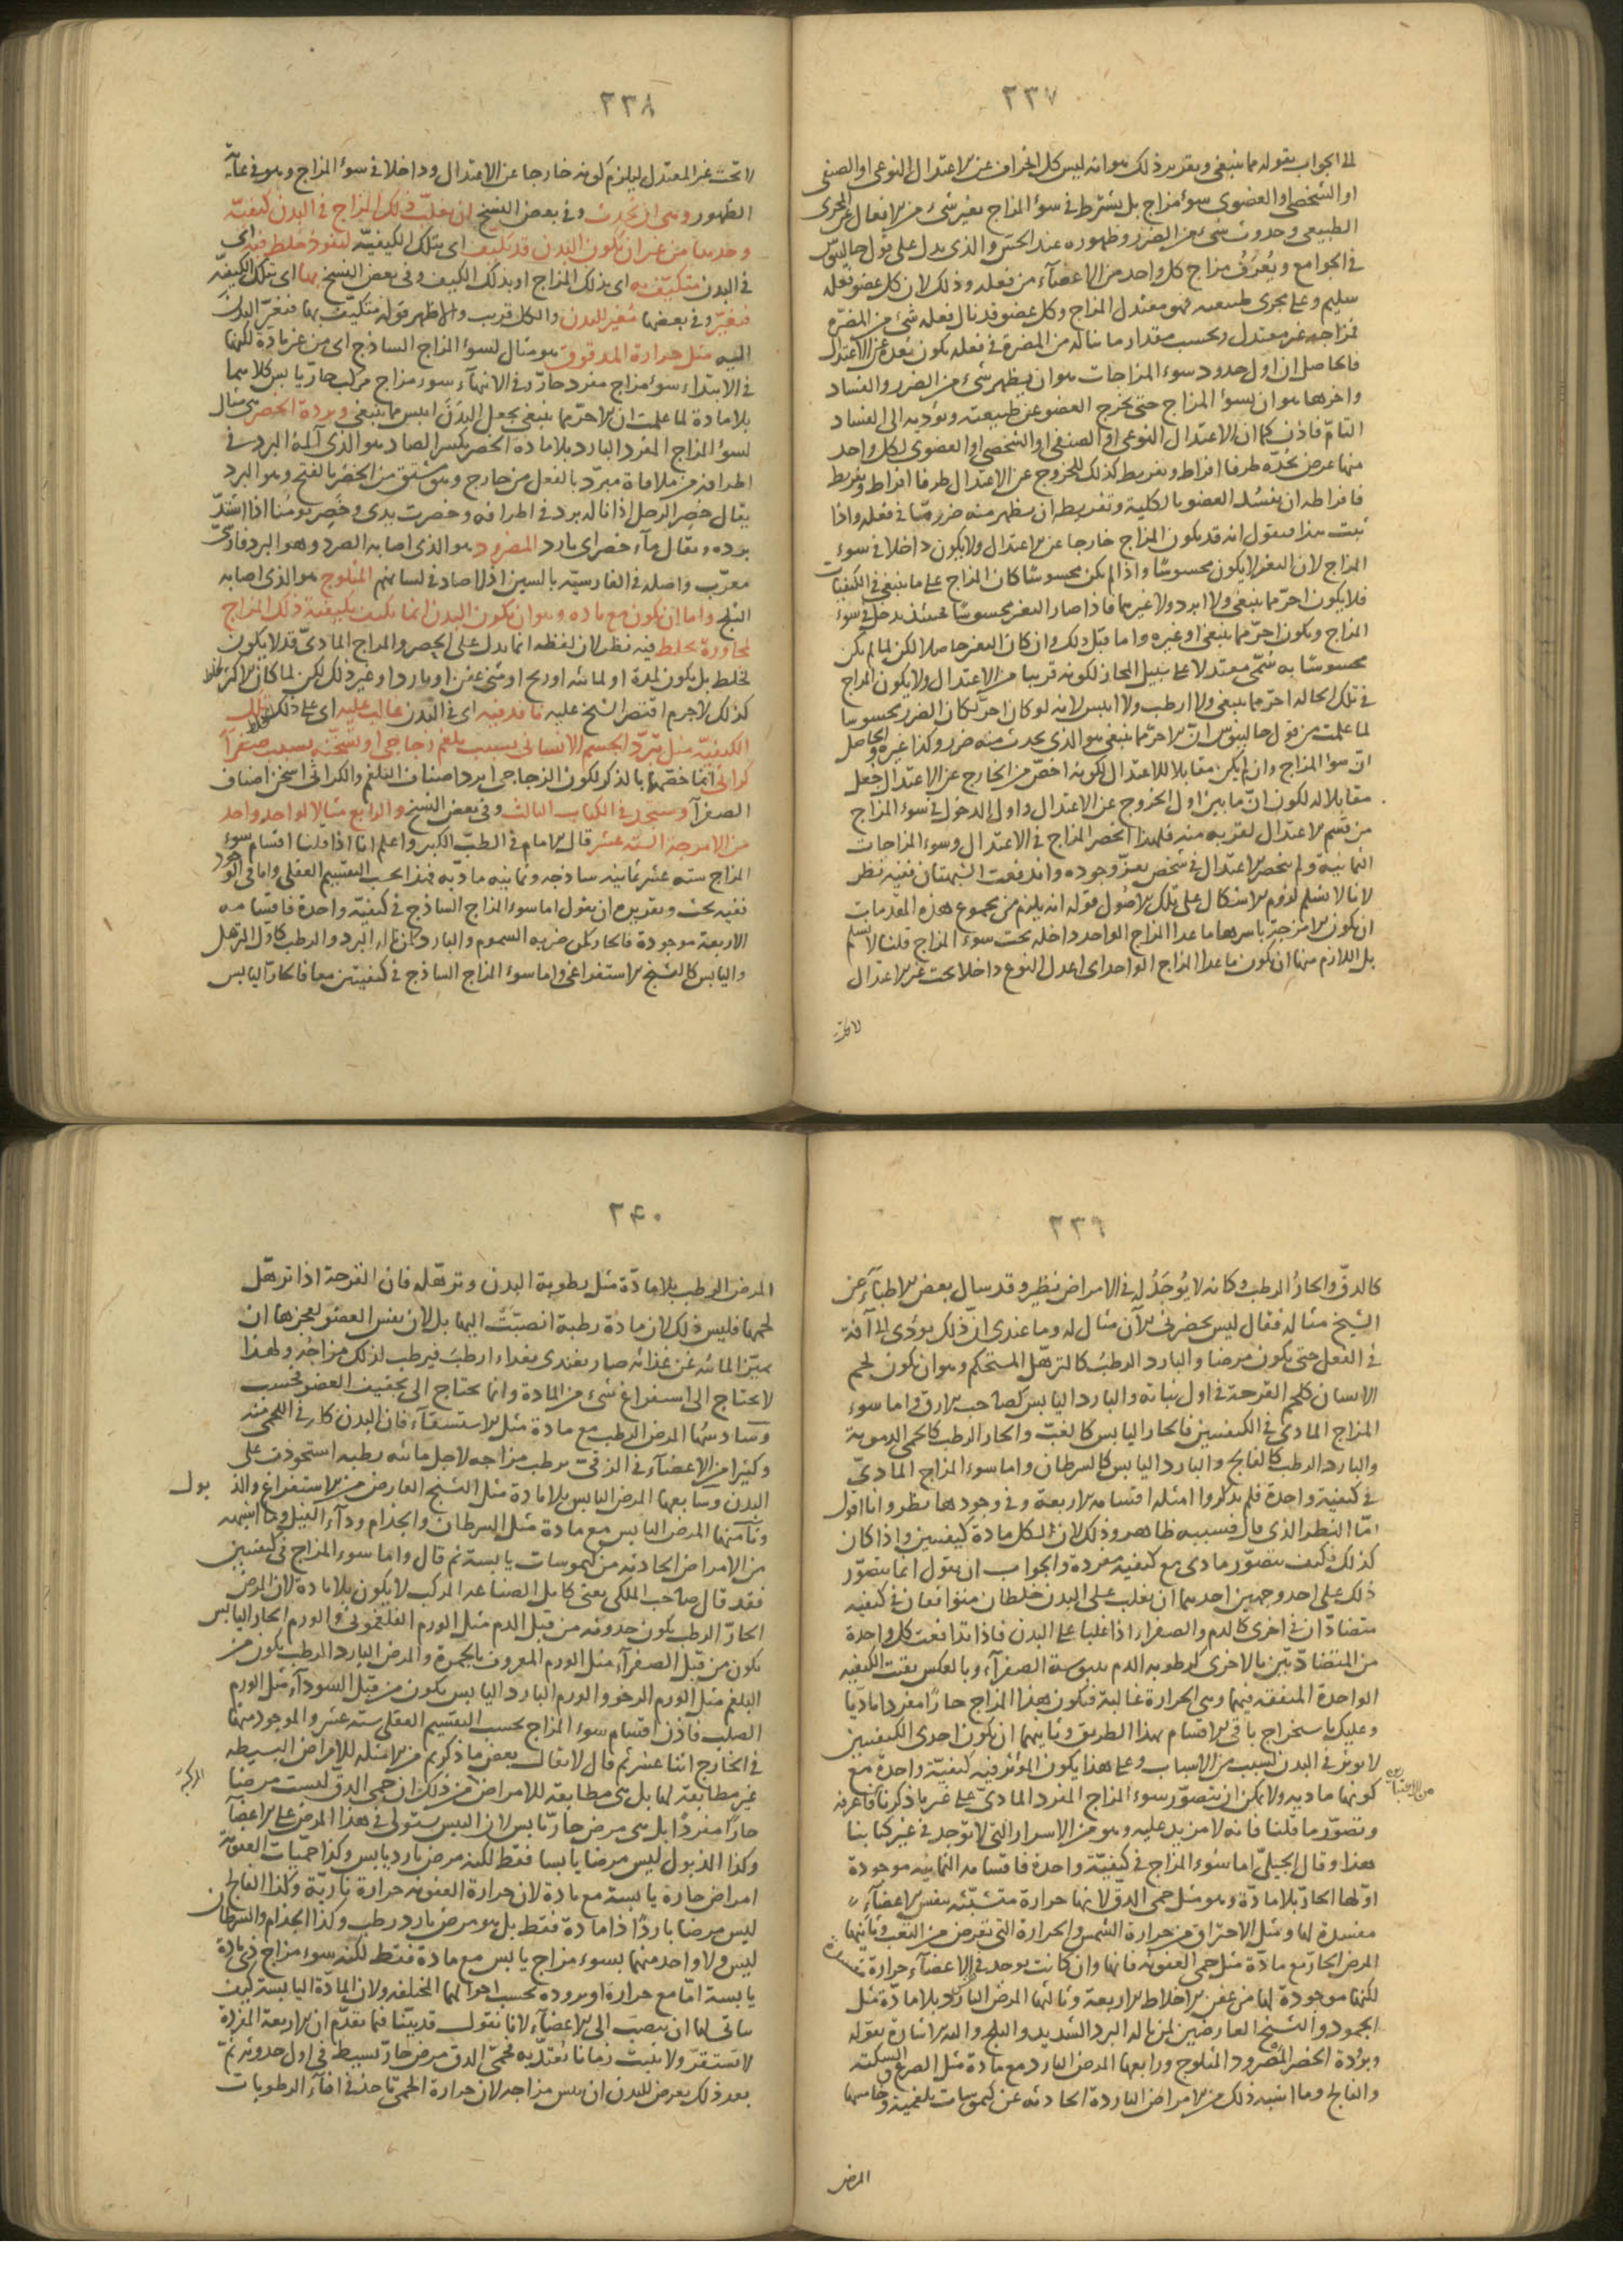 ٢٣٧
الى الجواب بقوله مما ينبغى وتقرير ذلك هو انه ليس كل انحراف عن الاعتدال النوعى او الصنفى
او الشخصى او العضوى سوء مزاج بل يشترط فى سوء المزاج تغير شئ من الافعال عن المجرى
الطبيعى وحدوث شئ من الضرر وظهوره عند الحس والذى يدل على قول جالينوس
فى الجوامع ويعرف مزاج كل واحد من الاعضآء من فعله وذلك لان كل عضو فعله
سليم وعلى مجرى طبيعته فهو معتدل المزاج وكل عضو قد نال فعله شئ من المضرة
فمزاجه غير معتدل وبحسب مقدار ما ناله من المضرة فى فعله يكون بعده عن الاعتدال
فالحاصل ان اول حدود سوء المزاجات هو ان يظهر شئ من الضرر والفساد
واخرها هو ان يسوء المزاج حتى يخرج العضو عن طبيعته ويؤديه الى الفساد
التام فاذن كما ان الاعتدال النوعى او الصنفى او الشخصى او العضوى لكل واحد
منها عرض يحده طرفا افراط وتفريط كذلك للخروج عن الاعتدال طرفا افراط وتفريط
فافراطه ان يفسد العضو بالكلية وتفريطه ان يظهر منه ضرر ما فى فعله واذا
ثبت هذا فنقول انه قد يكون المزاج خارجا عن الاعتدال ولا يكون داخلا فى سوء
المزاج لان التغير لا يكون محسوسا واذا لم يكن محسوسا كان المزاج على ما ينبغى فى الكيفيات
فلا يكون احر مما ينبغى ولا ابرد ولا غيرهما فاذا صار التغير محسوسا فحينئذ يدخل فى سوء
المزاج ويكون احر مما ينبغى او غيره واما قبل ذلك وان كان التغير حاصلا لكن لما لم يكن
محسوسا به سمى معتدلا على سبيل المجاز لكونه قريبا من الاعتدال ولا يكون المزاج
فى تلك الحاله احر مما ينبغى ولا ارطب ولا ايبس لانه لو كان احر لكان الضرر محسوسا
لما علمت من قول جالينوس ان الاحر مما ينبغى هو الذى يحدث منه ضرر وكذا غيره والحاصل
ان سوء المزاج وان لم يكن مقابلا للاعتدال لكونه اخص من الخارج عن الاعتدال جعل
مقابلا له لكون ان ما بين اول الخروج عن الاعتدال واول الدخول فى سوء المزاج
من قسم الاعتدال لقربه منه فلهذا انحصر المزاج فى الاعتدال وسوء المزاجات
الثمانية ولم ينحصر الاعتدال فى شخص يعز وجوده واندفعت الشبهتان ففيه نظر
لانا لا نسلم لزوم الاشكال على تلك الاصول قوله انه يلزم من مجموع هذه المقدمات
ان يكون الامزجة باسرها ما عدا المزاج الواحد داخله تحت سوء المزاج قلنا لا نسلم
بل اللازم منها ان يكون ما عدا المزاج الواحد اى اعدل النوع داخلا تحت غير الاعتدال
لا تحت
٢٣٨
لا تحت غير المعتدل ليلزم كونه خارجا عن الاعتدال وداخلا فى سوء المزاج وهو فى غاية
الظهور وهى اذ تحدث وفى بعض النسخ ان غلب ذلك المزاج فى البدن كيفيته
وحدها من غير ان يكون البدن قد تكيف اى بتلك الكيفية لنفوذ خلط فيه اى
فى البدن متكيف به اى بذلك المزاج او بذلك الكيف وفى بعض النسخ بها اى بتلك الكيفية
فتغير وفى بعضها مغير للبدن والكل قريب والاظهر قوله متكيف بها فتغير البدن
اليه مثل حرارة المدقوق هو مثال لسوء المزاج الساذج اى من غير مادة لكنها
فى الابتداء سوء مزاج مفرد حار وفى الانتهآء سوء مزاج مركب حار يابس كلاهما
بلا مادة لما علمت ان الاحر مما ينبغى يجعل البدن ايبس مما ينبغى وبرودة الخصر هى مثال
لسوء المزاج المفرد البارد بلا مادة الخصر بكسر الصاد هو الذى آلمه البرد فى
اطرافه من ملاقاة مبرد بالفعل من خارج وهو مشتق من الخصر بالفتح وهو البرد
يقال خصر الرجل اذا ناله برد فى اطرافه وخصرت يدى وخصر يومنا اذا اشتد
برده ويقال ماء خصر اى بارد المصرود هو الذى اصابه الصرد وهو البرد فارسى
معرب واصله فى الفارسية بالسين اذ لا صاد فى لسانهم المثلوج هو الذى اصابه
الثلج واما ان يكون مع ماده وهو ان يكون البدن انما تكيف بكيفية ذلك المزاج
لمجاورة خلط فيه نظر لان لفظه انما يدل على الحصر والمزاج المادى قد لا يكون
لخلط بل يكون لمدة او لمائيه او ريح او شئ عفن او بارد او غير ذلك لكن لما كان الاكثر
كذلك لاجرم اقتصر الشيخ عليه نافذ فيه اى فى البدن غالب عليه اى على ذلك الخلط تلك
الكيفيه مثل تبرد الجسم الانسانى بسبب بلغم زجاجى او تسخنه بسبب صفرآ
كراثى انما خصهما بالذكر لكون الزجاجى ابرد اصناف البلغم والكراثى اسخن اصناف
الصفرآ وستجد فى الكتاب الثالث وفى بعض النسخ والرابع مثالا لواحد واحد
من الامزجة الستة عشر قال الامام فى الطب الكبير واعلم انا اذا قلنا اقسام سوء
المزاج سته عشر ثمانيه ساذجه وثمانيه ماديه فهذا بحسب التقسيم العقلى واما فى الوجود
ففيه بحث وتقريره ان نقول اما سوء المزاج الساذج فى كيفية واحدة فاقسامه
الاربعة موجودة فالحار كمن ضربه السموم والبارد كمن ناله البرد والرطب كاول الترهل
واليابس كالتشنج الاستفراغى واما سوء المزاج الساذج فى كيفيتين معا فالحار اليابس
٢٣٩
كالدق والحار الرطب وكانه لا يوجد له فى الامراض نظير وقد سال بعض الاطبآء عن
الشيخ مثاله فقال ليس يحضرنى الآن مثال له وما عندى ان ذلك يؤدى الى آفة
فى الفعل حتى يكون مرضا والبارد الرطب كالترهل المستحكم وهو ان يكون لحم
الانسان كلحم القرحة فى اول نباته والبارد اليابس كصاحب الارق واما سوء
المزاج المادى فى الكيفيتين فالحار اليابس كالغب والحار الرطب كالحمى الدموية
والبارد الرطب كالفالج والبارد اليابس كالسرطان واما سوء المزاج المادى
فى كيفية واحدة فلم يذكروا امثله اقسامه الاربعة وفى وجودها نظر وانا اقول
اما النظر الذى قال فسببه ظاهر وذلك لان لكل مادة كيفيتين واذا كان
كذلك فكيف يتصور مادى مع كيفية مفردة والجواب ان نقول انما يتصور
ذلك على احد وجهين احدهما ان يغلب على البدن خلطان متوافقان فى كيفيه
متضادان فى اخرى كالدم والصفرا اذا غلبا على البدن فاذا تدافعت كل واحدة
من المتضادتين بالاخرى كرطوبه الدم بيبوسة الصفرآء وبالعكس بقيت الكيفيه
الواحدة المتفقه فيهما وهى الحرارة غالبة فيكون هذا المزاج حارا مفردا ماديا
وعليك باستخراج باقى الاقسام بهذا الطريق وثانيهما ان يكون احدى الكيفيتين
لا تؤثر فى البدن لسبب من الاسباب وعلى هذا يكون المؤثر فيه كيفية واحدة مع
كونها ماديه ولا يمكن ان يتصور سوء المزاج المفرد المادى على غير ما ذكرنا فاعرفه
وتصور ما قلنا فانه لا مزيد عليه وهو من الاسرار التى لا توجد فى غير كتابنا
هذا وقال الجيلى اما سوء المزاج فى كيفية واحدة فاقسامه الثمانيه موجودة
اولها الحار بلا مادة وهو مثل حمى الدق لانها حرارة متشبثه بنفس الاعضآء
مفسدة لها ومثل الاحتراق من حرارة الشمس والحرارة التى تعرض من التعب وثانيها
المرض الحار مع مادة مثل حمى العفونه فانها وان كانت توجد فى الاعضآء حرارة
لكنها موجودة لها من عفن الاخلاط الاربعة وثالثها المرض البارد بلا مادة مثل
الجمود والتشنج العارضين لمن ناله البرد الشديد والثلج واليه الاشارة بقوله
وبرودة الخصر المصرود المثلوج ورابعها المرض البارد مع مادة مثل الصرع والسكته
والفالج وما اشبه ذلك من الامراض الباردة الحادثه عن كيموسات بلغمية وخامسها
المرض
٢٤٠
المرض الرطب بلا مادة مثل رطوبة البدن وترهله فان القرحة اذا ترهل
لحمها فليس ذلك لان مادة رطبة انصبت اليها بل لان نفس العضو لعجزها ان
يميز المائه عن غذائه صار يغتذى بغذاء ارطب فيرطب لذلك مزاجه ولهذا
لا يحتاج الى استفراغ شئ من المادة وانما يحتاج الى تجفيف العضو فحسب
وسادسها المرض الرطب مع مادة مثل الاستسقآء فان البدن كله فى اللحمى منه
وكثيرا من الاعضآء فى الزقى يرطب مزاجه لاجل مائيه رطبه استحوذت على
البدن وسابعها المرض اليابس بلا مادة مثل التشنج العارض من الاستفراغ والذبول
وثامنها المرض اليابس مع مادة مثل السرطان والجذام ودآء الفيل وما اشبهه
من الامراض الحادثه من كيموسات يابسة ثم قال واما سوء المزاج فى كيفيتين
فقد قال صاحب الملكى يعنى كامل الصناعه المركب لا يكون بلا مادة لان المرض
الحار الرطب يكون حدوثه من قبل الدم مثل الورم الفلغمونى والورم الحار اليابس
يكون من قبل الصفرآء مثل الورم المعروف بالجمرة والمرض البارد الرطب يكون من
البلغم مثل الورم الرخو والورم البارد اليابس يكون من قبل السودآء مثل الورم
الصلب فاذن اقسام سوء المزاج بحسب التقسيم العقلى سته عشر والموجود منها
فى الخارج اثنا عشر ثم قال لا يقال بعض ما ذكرتم من الامثله للامراض البسيطه
غير مطابقة لها بل هى مطابقه للامراض المركبه من ذلك ان حمى الدق ليست مرضا
حارا مفردا بل هى مرض حار يابس لان اليبس يستولى فى هذا المرض على الاعضآ
وكذا الذبول ليس مرضا يابسا فقط لكنه مرض بارد يابس وكذا حميات العفونة
امراض حارة يابسة مع مادة لان حرارة العفونه حرارة ناريه وكذا الفالج
ليس مرضا باردا ذا مادة فقط بل هو مرض بارد رطب وكذا الجذام والسرطان
ليس ولا واحد منهما بسوء مزاج يابس مع مادة فقط لكنه سوء مزاج ذى مادة
يابسة اما مع حرارة او بروده بحسب احوالهما المختلفه ولان المادة اليابسة كيف
يتاتى لها ان ينصب الى الاعضآء لانا نقول قد بينا فيما تقدم ان الاربعة المفردة
لا تستقر ولا تثبت زمانا يعتد به فحمى الدق مرض حار بسيط فى اول حدوثه ثم
بعد ذلك يعرض للبدن ان ييبس مزاجه لان حرارة الحمى تاخذ فى افنآء الرطوبات